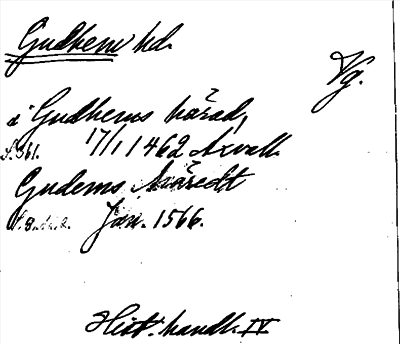 Gudhem hd.
Vg.
i Gudhems härad,
S. 361. 17/1 1462 Axvall.
Gudems häredt
Jan. 1566.
Hist. handl. IV